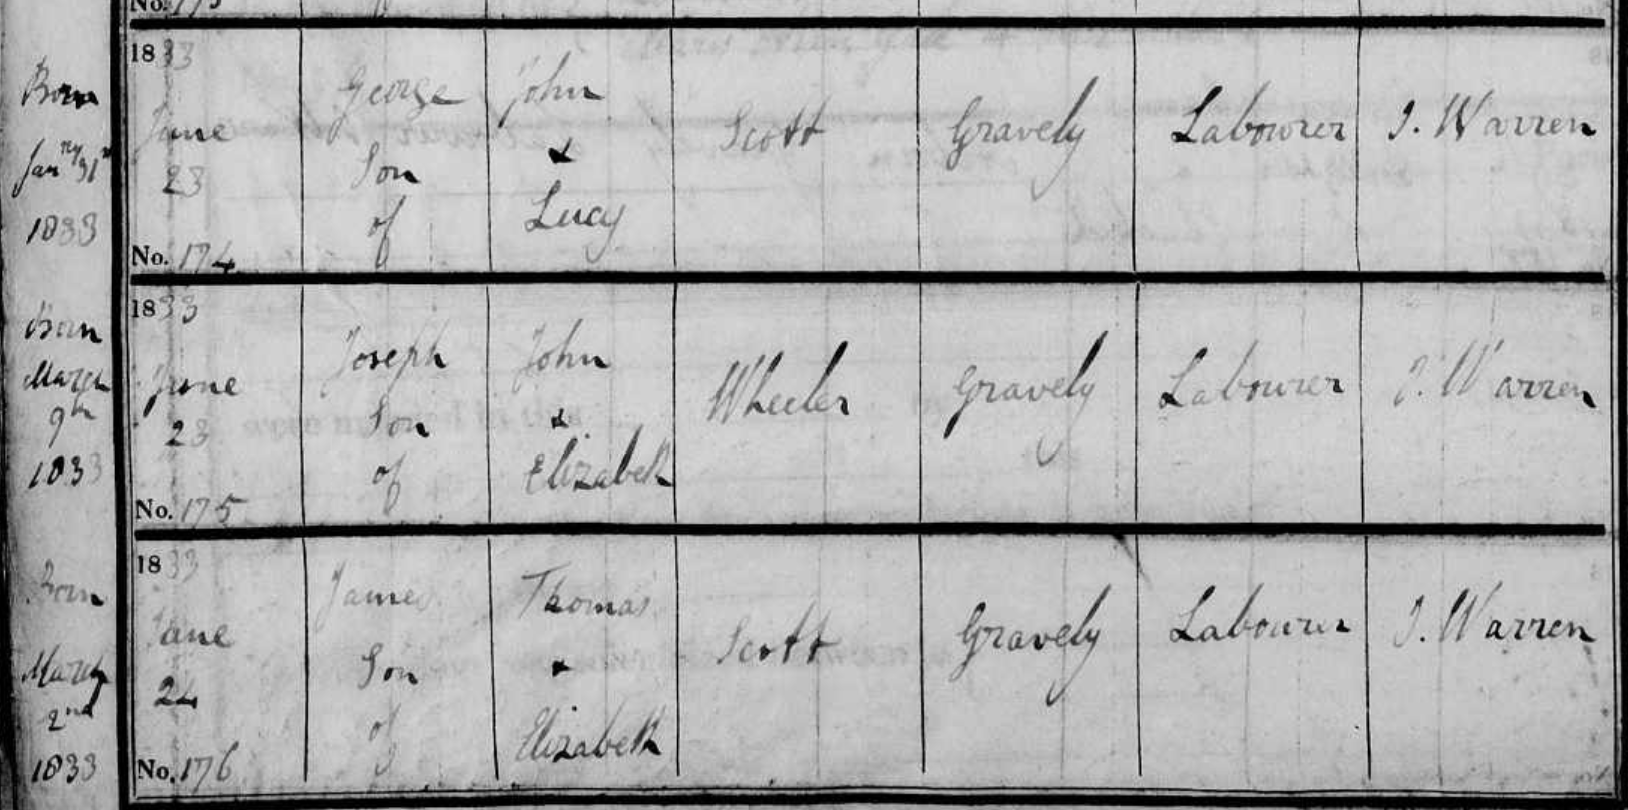 No. 173
Born
Janry 31st
1833
1833
June
23
No. 174
George
Son
of
John
&
Lucy
Scott
Gravely
Labourer
J. Warren
Born
March
9th
1833
1833
June
23
No. 175
Joseph
Son
of
John
&
Elizabeth
Wheeler
Gravely
Labourer
J. Warren
Born
March
2nd
1833
1833
June
24
No. 176
James
Son
of
Thomas
&
Elizabeth
Scott
Gravely
Labourer
J. Warren